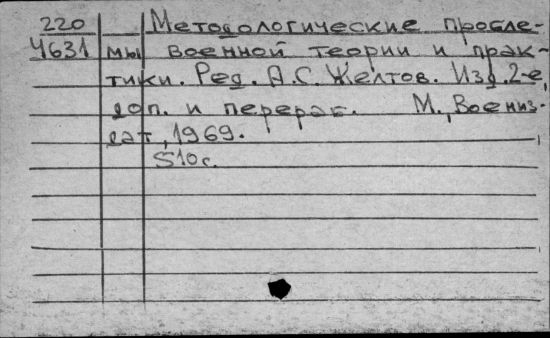 220 Методологические пробле-
4631 мы военной теории и прак-
тики. Ред. А.С. Желтов. Изд. 2-е,
доп. и перераб. М., Воениз-
дат, 1969.
510с.